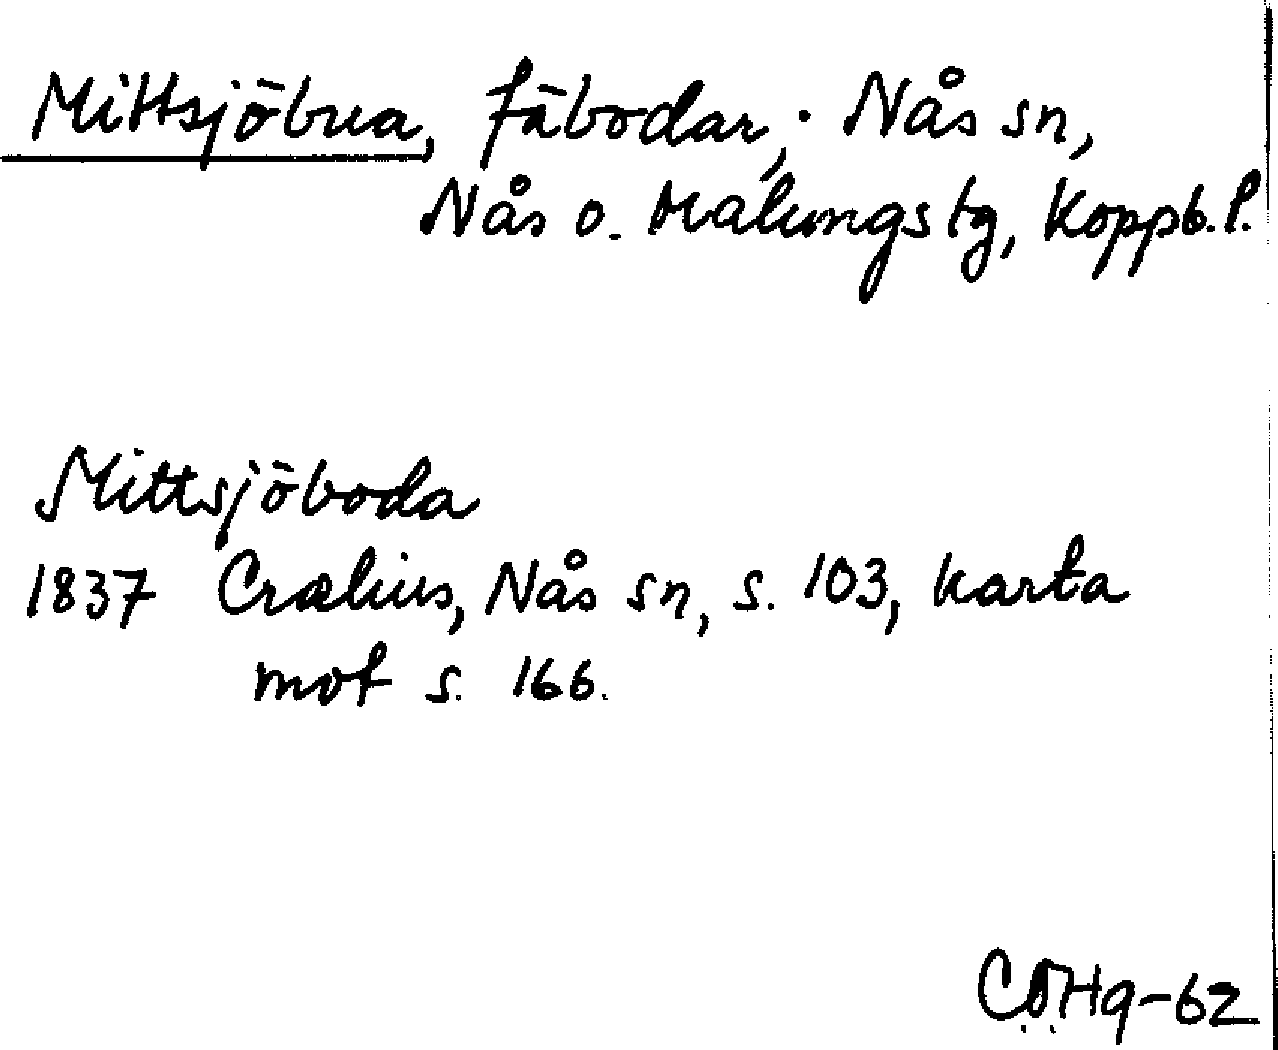 Mittsjöbua, fäbodar, Nås sn,
Nås o. Malungs tg, Koppb. l.
Mittsjöboda
1837 Crælius, Nås sn, s. 103, karta
mot s. 166.